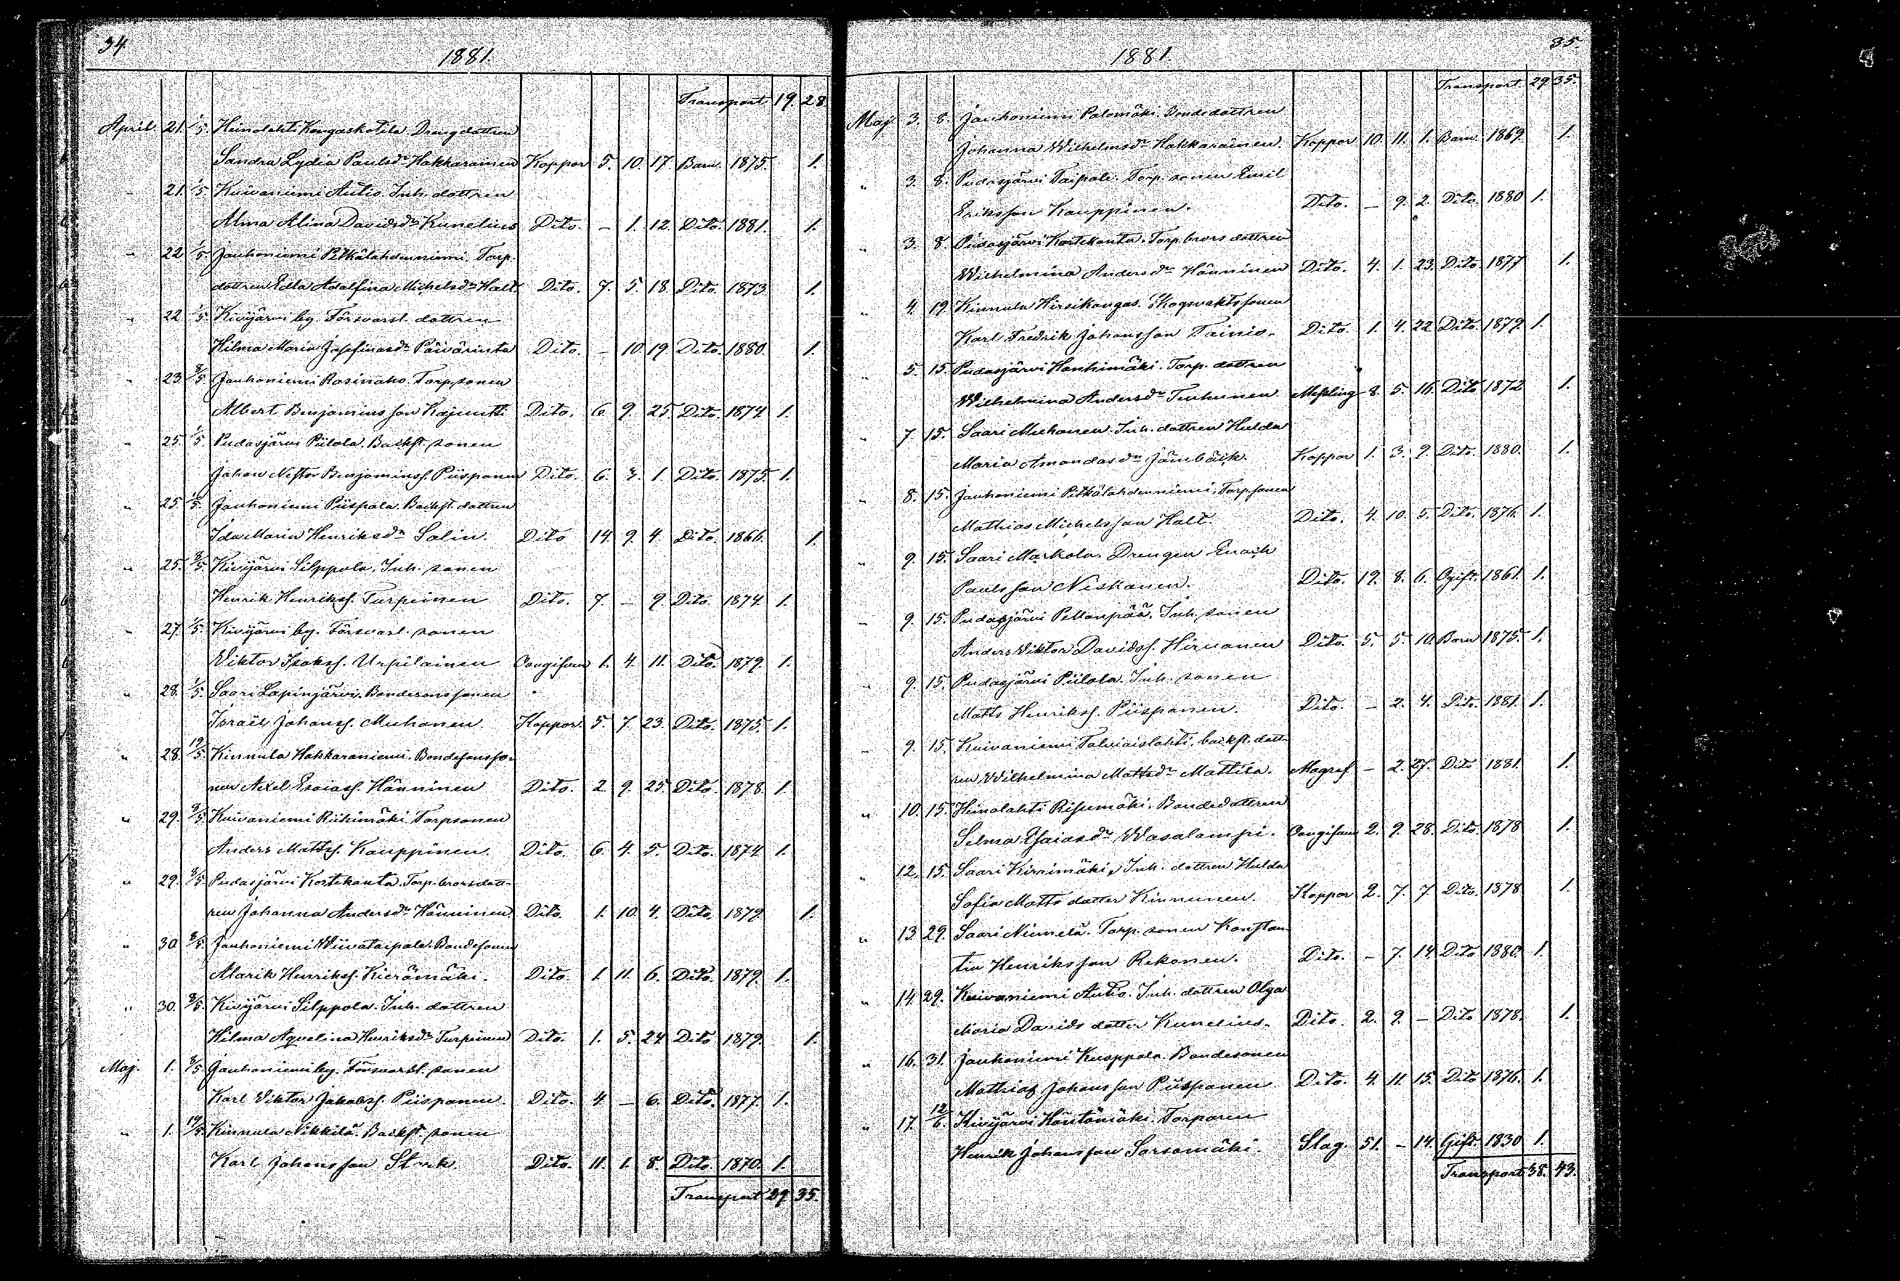 34
1881.
Transport 19. 28
April 21. 1/5. Heinolahti Kangaskotila. Drengdottren
Sandra Lydia Paulsdr Hakkarainen Koppor 5. 10. 17 Barn. 1875. 1.
" 21. 1/5. Kuivaniemi Autio. Inh. dottren
Alma Alina Davidsdr Kunelius Dito. – 1. 12. Dito. 1881. 1.
" 22 1/5. Jauhoniemi Pitkälahdenniemi. Torp.
dottren Edla Adolfina Michelsdr Halt Dito. 7. 5. 18. Dito. 1873 1.
" 22 1/5. Kivijärvi by. Försvarsl. dottren
Hilma Maria Josefinasdr Päivärinta Dito. – 10. 19 Dito. 1880. 1.
" 23. 8/5. Jauhoniemi Rosinaho. Torp. sonen
Albert Benjamins son Kajuutti Dito. 6. 9. 25. Dito. 1874 1.
" 25. 1/5. Pudasjärvi Piilola. Backst. sonen
Johan Nestor Benjaminss. Piispanen Dito. 6. 3. 1. Dito. 1875. 1.
" 25. 1/5. Jauhoniemi Piispala. Backst. dottren
Ida Maria Henriksdr Salin. Dito 14. 9. 4. Dito. 1866. 1.
" 25. 8/5. Kivijärvi Silppola. Inh. sonen
Henrik Henrikss. Turpeinen Dito. 7. – 9 Dito. 1874. 1.
" 27. 1/5. Kivijärvi by. Försvarsl. sonen
Viktor Isakss. Urpilainen Oangifven 1. 4. 11. Dito. 1879. 1.
" 28. 1/5. Saari Lapinjärvi. Bondesons sonen
Israël Johanss. Muhonen Koppor. 5. 7. 23. Dito. 1875. 1.
" 28. 19/5. Kinnula Hakkaraniemi. Bondesonsso-
nen Axel Esaiass. Hänninen Dito. 2 9. 25. Dito. 1878. 1.
" 29. 8/5. Kuivaniemi Riihimäki. Torpsonen
Anders Mattss. Kauppinen. Dito. 6. 4. 5. Dito. 1874 1.
" 29. 8/5. Pudasjärvi Kortekanta. Torp. brorsdott-
ren Johanna Andersdr Hänninen Dito. 1. 10. 4. Dito. 1879. 1.
" 30. 8/5. Jauhoniemi Wiivataipale. Bondesonen
Alarik Henrikss. Kierämäki. Dito. 1. 11. 6. Dito. 1879. 1.
" 30. 8/5. Kivijärvi Silppola. Inh. dottren
Hilma Aqvelina Henriksdr Turpeinen Dito. 1. 5. 24 Dito. 1879. 1.
Maj. 1. 8/5 Jauhoniemi by. Försvarsl. sonen
Karl Viktor Jakobss. Piispanen. Dito. 4 – 6. Dito. 1877. 1.
" 1. 19/5. Kinnula Nikkilä. Backst. sonen
Karl Johansson Stark. Dito. 11. 1. 8. Dito. 1870. 1.
Transport 29 35.
35.
1881.
Transport. 29. 35.
Maj. 3. 8. Jauhoniemi Palomäki. Bondedottren
Johanna Wilhelmsdr Hakkarainen. Koppor 10. 11. 1. Barn. 1869. 1.
" 3. 8. Pudasjärvi Taipale. Torp. sonen Emil
Eriksson Kauppinen. Dito. – 9. 2. Dito. 1880 1.
" 3. 8. Pudasjärvi Kortekanta. Torp. brors dottren
Wilhelmina Andersdr Hänninen Dito. 4. 1. 23. Dito. 1877 1.
" 4. 19. Kinnula Hirsikangas. Skogsvaktssonen
Karl Fredrik Johansson Tainio. Dito. 1. 4. 22. Dito. 1879. 1.
" 5. 15. Pudasjärvi Honkimäki. Torp. dottren
Wilhelmina Andersdr Turunen Messling 8. 5. 16. Dito 1872. 1.
" 7 15. Saari Muhonen. Inh. dottren Hulda
Maria Amandasdr Jämbäck. Koppor 1. 3. 9. Dito. 1880. 1.
" 8. 15. Jauhoniemi Pitkälahdenniemi. Torpsonen
Mathias Michelsson Halt. Dito. 4. 10. 5. Dito. 1876. 1.
" 9. 15. Saari Markola. Drengen Enoch
Paulsson Niskanen. Dito. 19. 8. 6. Ogift. 1861. 1.
" 9. 15. Pudasjärvi Pellonpää. Inh. sonen
Anders Viktor Davidss. Hirvonen Dito. 5. 5 10. Barn 1875. 1.
" 9. 15. Pudasjärvi Piilola. Inh. sonen
Matts Henrikss. Piispanen. Dito. – 2. 4. Dito. 1881. 1.
" 9. 15. Kuivaniemi Talviaislahti. backst. dott-
ren Wilhelmina Mattsdr Mattila. Magref – 2. 27. Dito 1881. 1.
" 10. 15. Heinolahti Risumäki. Bondedottren
Selma Esaiasdr Wasalampi. Oangifven 2. 9. 28. Dito. 1878 1.
" 12. 15. Saari Kirrimäki. Inh. dottren Hulda
Sofia Matts dotter Kinnunen. Koppor 2. 7. 7 Dito. 1878 1.
" 13. 29. Saari Niemelä. Torp. sonen Konstan-
tin Henriksson Rekonen. Dito. – 7. 14 Dito 1880. 1.
" 14 29. Kuivaniemi Autio. Inh. dottren Olga
Maria Davids dotter Kunelius. Dito. 2. 9. – Dito 1878. 1.
" 16. 31. Jauhoniemi Kuoppala. Bondesonen
Mathias Johansson Piispanen. Dito. 4. 11. 15. Dito 1876. 1.
" 17. 12/6. Kivijärvi Häntämäki. Torparen
Henrik Johansson Sorsamäki. Slag. 51. – 14. Gift. 1830 1.
Transport 38. 43.